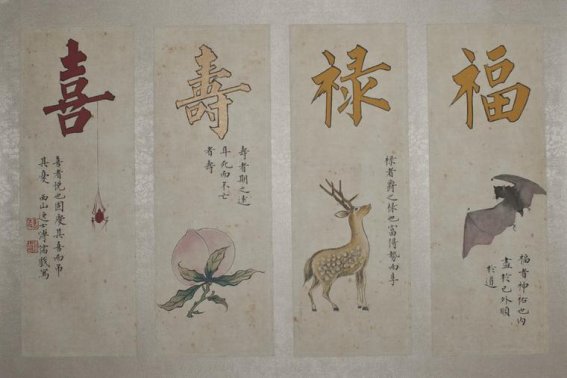 福
福者神佑也内
盡於己外順
於道
禄
禄者爵之俸也富得勢而享
壽
壽者期之遠
年死而不亡
者壽
喜
喜者悦也因慶其喜而吊
其憂 西山逸士溥儒戲寫